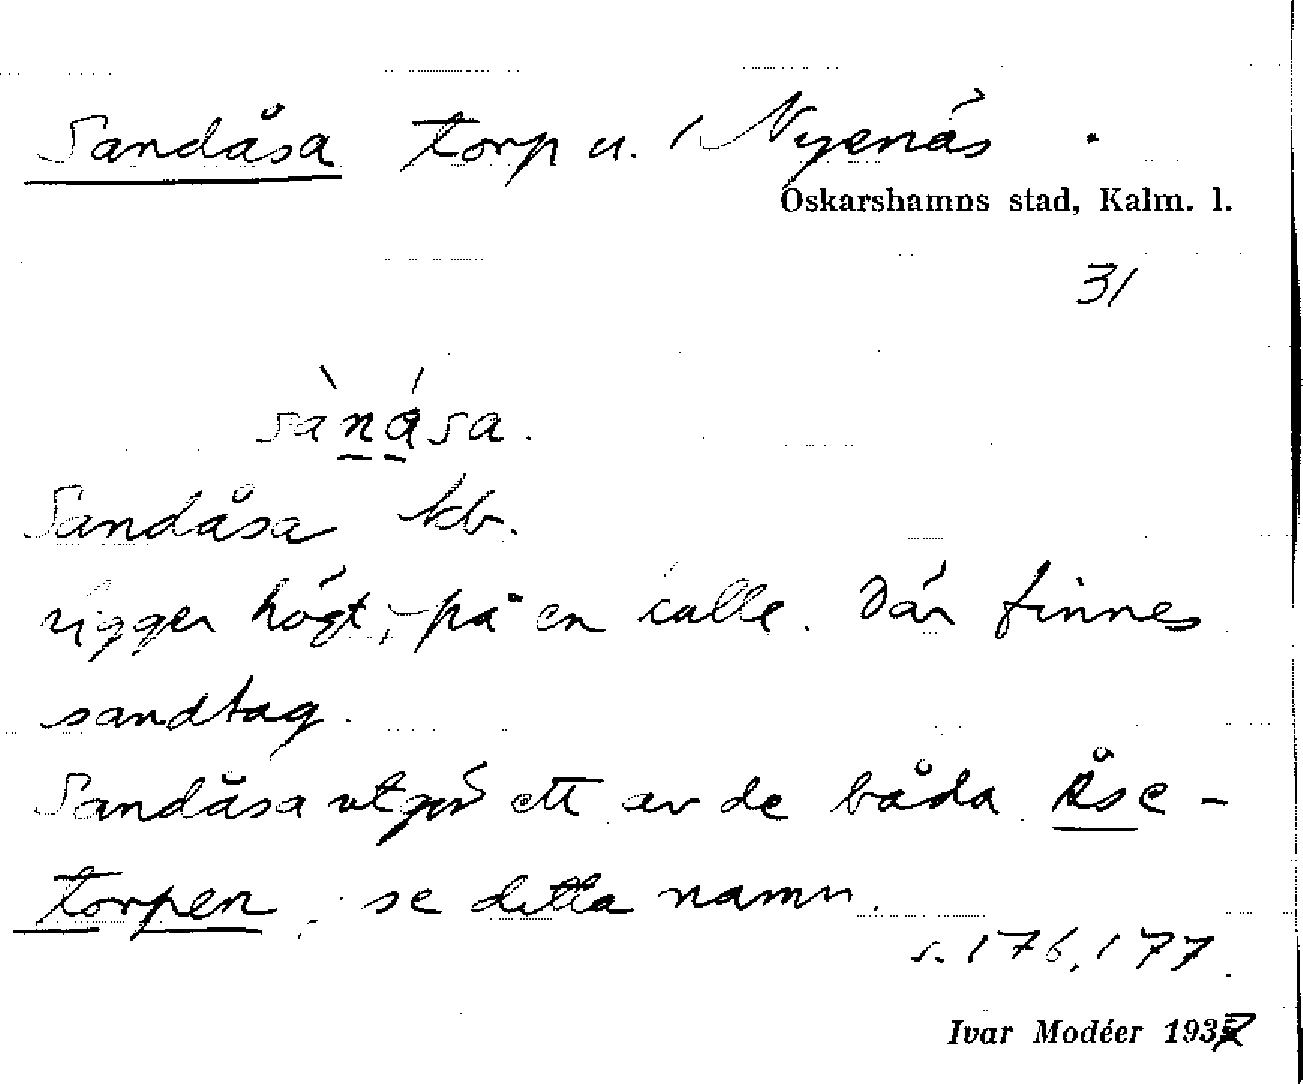 Sandåsa torp u. 1 Nyenäs.
Oskarshamns stad, Kalm. l.
31
sànása.
Sandåsa kb.
ligger högt, på en kulle. Där finnes
sandtag.
Sandåsa utgör ett av de båda Åse-
torpen, se detta namn.
s. 176, 177.
Ivar Modéer 1937